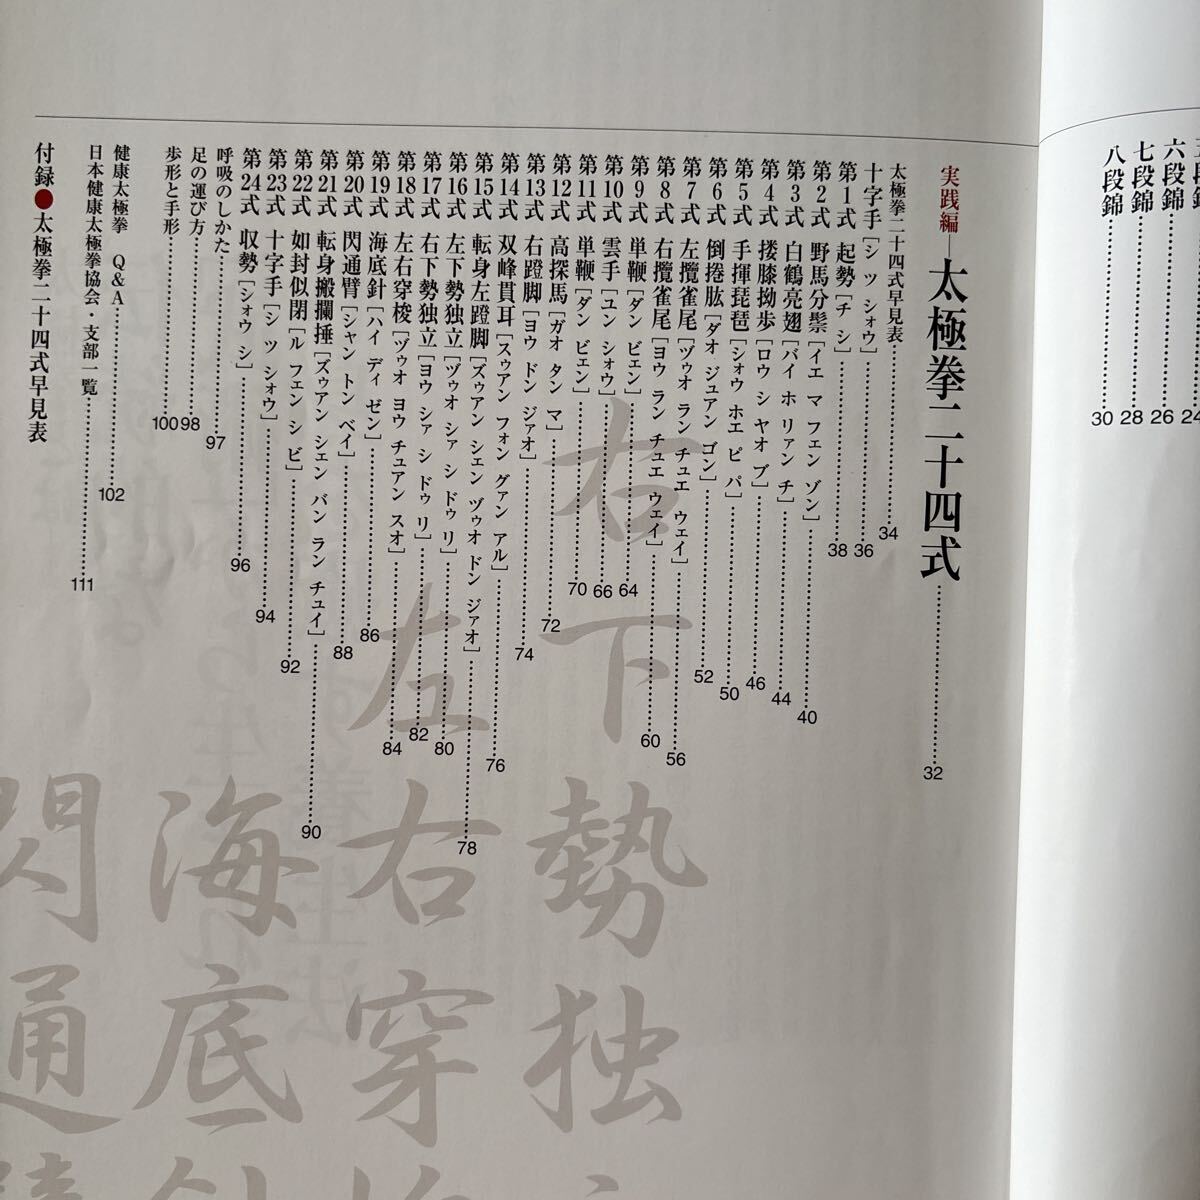 六段錦 26
七段錦 28
八段錦 30
実践編―太極拳二十四式 32
太極拳二十四式早見表 34
十字手［シ ツ ショウ］ 36
第1式 起勢［チ シ］ 38
第2式 野馬分鬃［イエ マ フェン ゾン］ 40
第3式 白鶴亮翅［バイ ホ リァン チ］ 44
第4式 搂膝拗歩［ロウ シ ヤオ ブ］ 46
第5式 手揮琵琶［ショウ ホエ ピ パ］ 50
第6式 倒捲肱［ダオ ジュアン ゴン］ 52
第7式 左攬雀尾［ヅゥオ ラン チュエ ウェイ］ 56
第8式 右攬雀尾［ヨウ ラン チュエ ウェイ］ 60
第9式 単鞭［ダン ビェン］ 64
第10式 雲手［ユン ショウ］ 66
第11式 単鞭［ダン ビェン］ 70
第12式 高探馬［ガオ タン マ］ 72
第13式 右蹬脚［ヨウ ドン ジァオ］ 74
第14式 双峰貫耳［スゥアン フォン グァン アル］ 76
第15式 転身左蹬脚［ズゥアン シェン ヅゥオ ドン ジァオ］ 78
第16式 左下勢独立［ヅゥオ シァ シ ドゥ リ］ 80
第17式 右下勢独立［ヨウ シァ シ ドゥ リ］ 82
第18式 左右穿梭［ヅゥオ ヨウ チュアン スオ］ 84
第19式 海底針［ハイ ディ ゼン］ 86
第20式 閃通臂［シャン トン ベイ］ 88
第21式 転身搬攔捶［ズゥアン シェン バン ラン チュイ］ 90
第22式 如封似閉［ル フェン シ ビ］ 92
第23式 十字手［シ ツ ショウ］ 94
第24式 収勢［ショウ シ］ 96
呼吸のしかた 97
足の運び方 98
歩形と手形 100
健康太極拳 Q&A 102
日本健康太極拳協会・支部一覧 111
付録●太極拳二十四式早見表
右下
勢独
左
右穿
海底
閃通